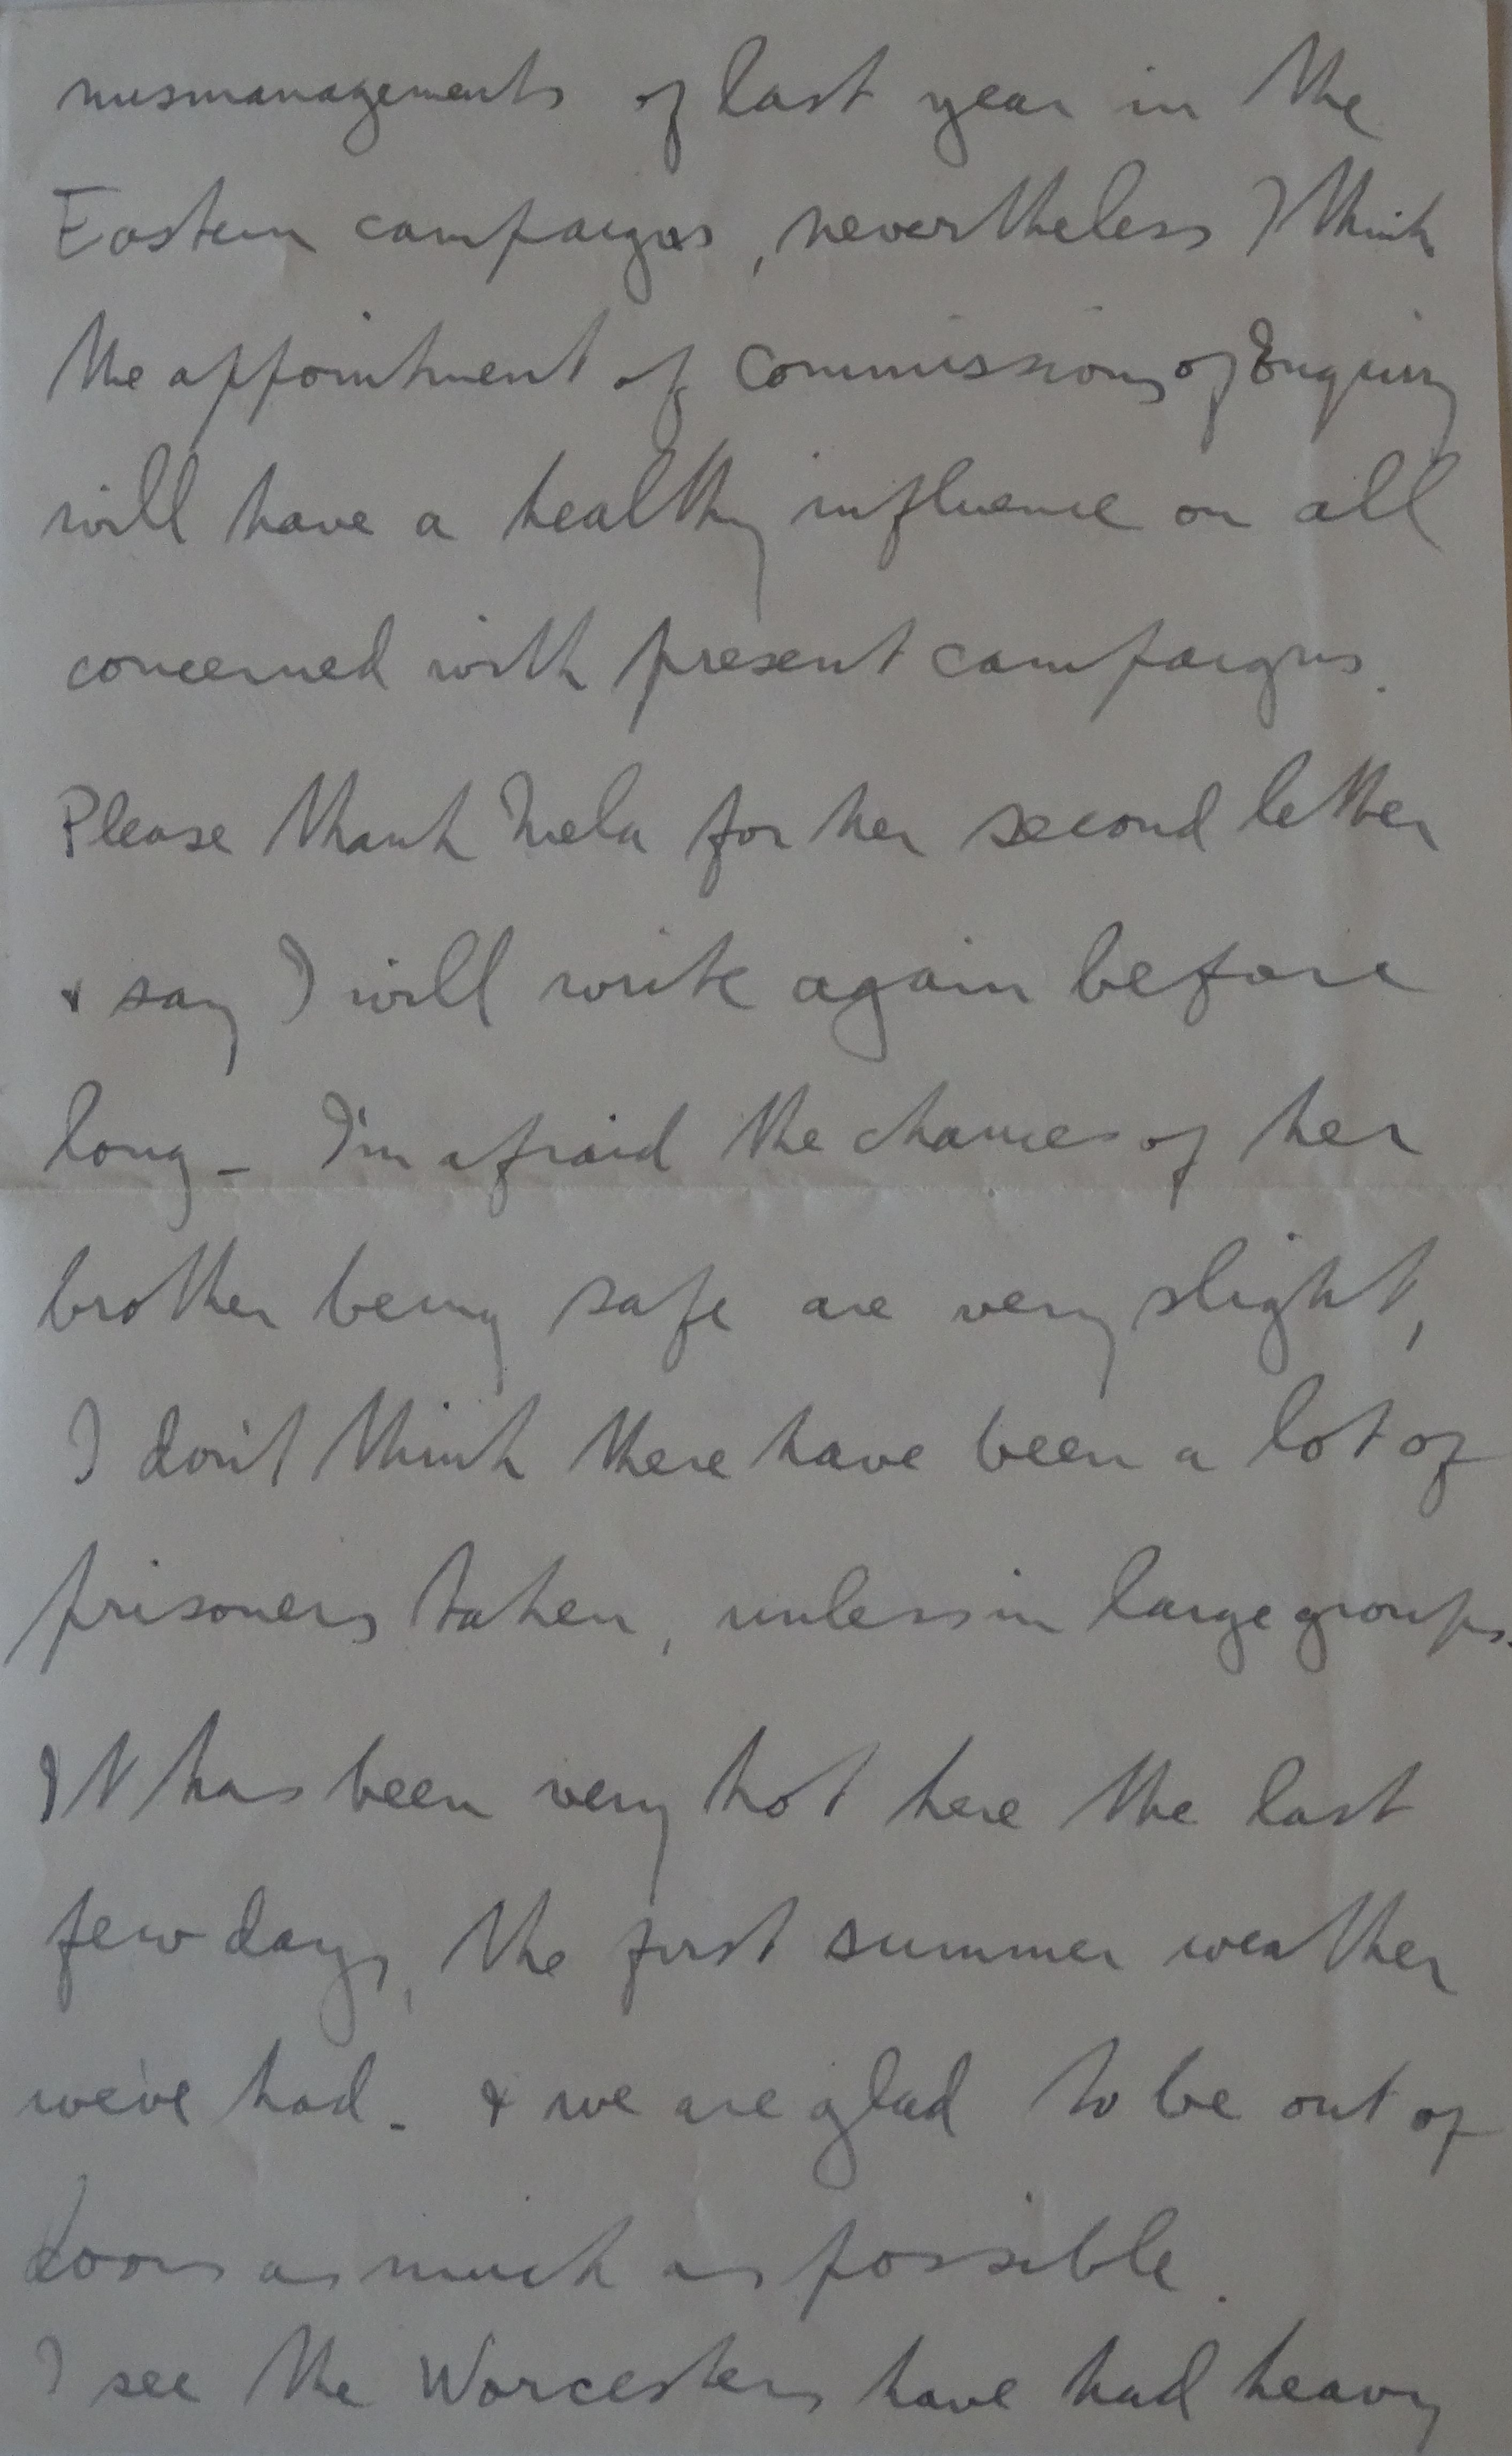 mismanagements of last year in the
Eastern campaigns, nevertheless I think
the appointment of Commissions of Enquiry
will have a healthy influence on all
concerned with present campaigns.
Please thank for her second letter
& say I will write again before
long - I'm afraid the chances of her
brother being safe are very slight,
I don't think there have been a lot of
prisoners taken, unless in large groups.
It has been very hot here the last
few days, the first summer weather
we've had - & we are glad to be out of
doors as much as possible.
I see the Worcesters have had heavy